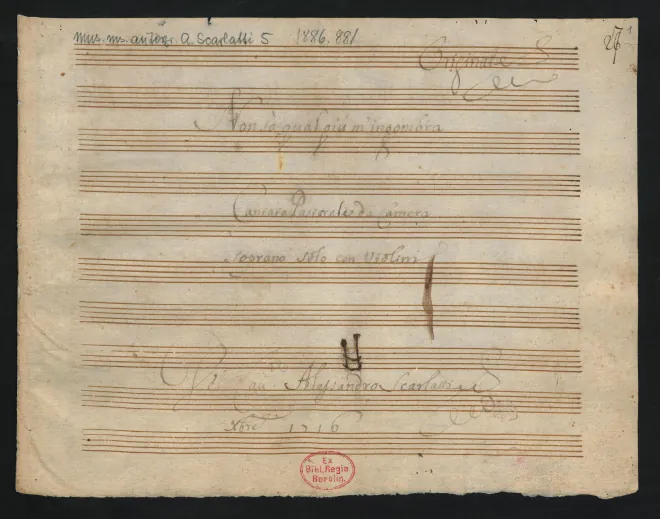 Mus. ms. autogr. A. Scarlatti 5 1886.881
27
Originale
Non sò qual più m'ingombra
Cantata Pastorale da Camera
Soprano Solo con Violini
Del Alessandro Scarlatti
Xbre 1716
Ex
Bibl. Regia
Berolin.